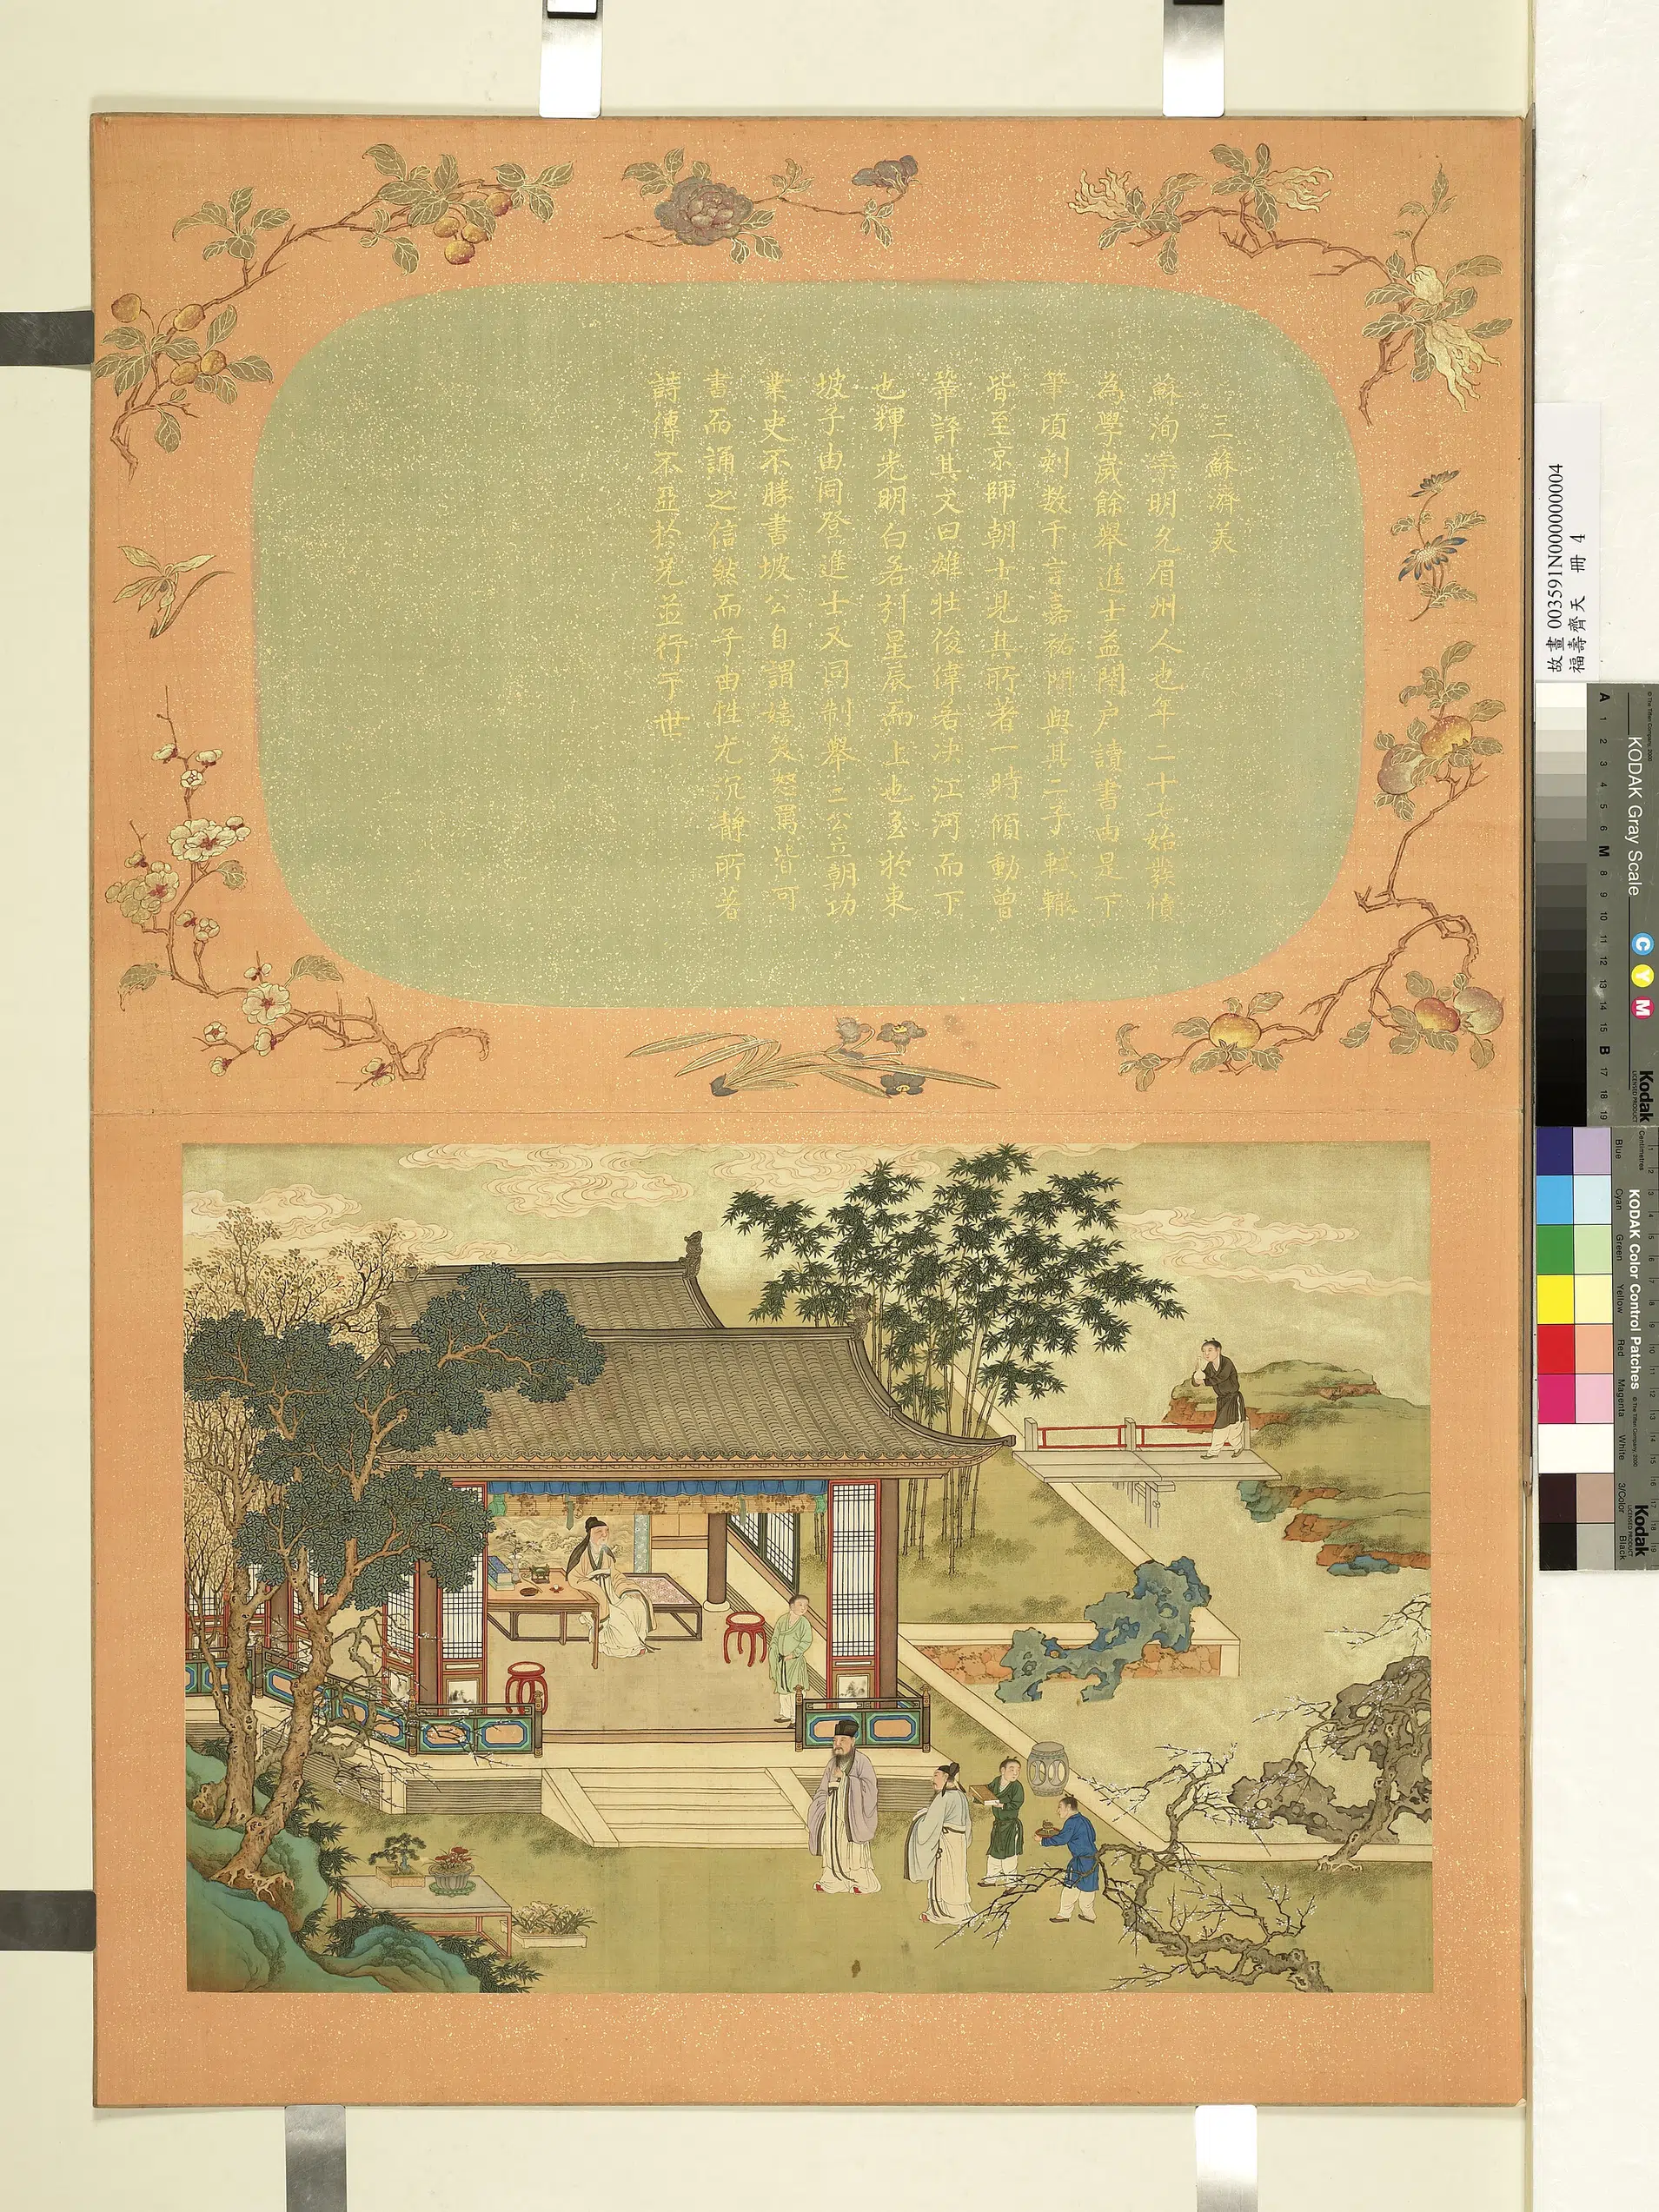 三蘇濟美
蘇洵字明允眉州人也年二十七始發憤
為學歲餘舉進士益閉户讀書由是下
筆頃刻数千言嘉祐間與其二子軾轍
皆至京師朝士見其所著一時傾動曾
鞏評其文曰雄壯俊偉若決江河而下
也輝光明白若引星辰而上也至於東
坡子由同登進士又同制舉二公立朝功
業史不勝書坡公自謂嬉笑怒罵皆可
書而誦之信然而子由性尤沉靜所著
詩傳不亞於兄並行于世
故畫003591N000000004
福壽齊天 冊 4
KODAK Gray Scale
C Y M
Kodak
LICENSED PRODUCT
A 1 2 3 4 5 6 M 8 9 10 11 12 13 14 15 B 17 18 19
KODAK Color Control Patches
© The Tiffen Company, 2000
Kodak
LICENSED PRODUCT
Centimetres
Blue Cyan Green Yellow Red Magenta White 3/Color Black